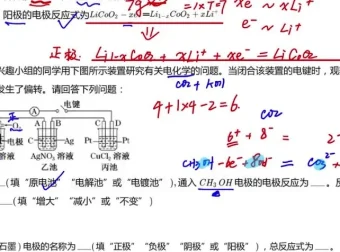 阳极的电极反应式为LiCoO₂ - xe⁻ = Li₁₋ₓCoO₂ + xLi⁺
7g
= 1×7=7
xe⁻ ~ xLi⁺
e⁻ ~ Li⁺
正极: Li₁₋ₓCoO₂ + xLi⁺ + xe⁻ = LiCoO₂
兴趣小组的同学用下图所示装置研究有关电化学的问题。当闭合该装置的电键时,观
发生了偏转。请回答下列问题:
CO₂ + KOH
4+1×4-2=6
CO₂
A 电键
正
A B C D
Ag Pt Pt
溶液 AgNO₃ 溶液 CuCl₂ 溶液
乙池 丙池
6⁺ + 8⁻ = 2⁻
CH₃OH - 6e⁻ + 8OH⁻ = CO₃²⁻ +
(填“原电池”“电解池”或“电镀池”),通入 CH₃OH 电极的电极反应为 。反
(填“增大”“减小”或“不变”)
石墨)电极的名称为 (填“正极”“负极”“阴极”或“阳极”),总反应式为 。